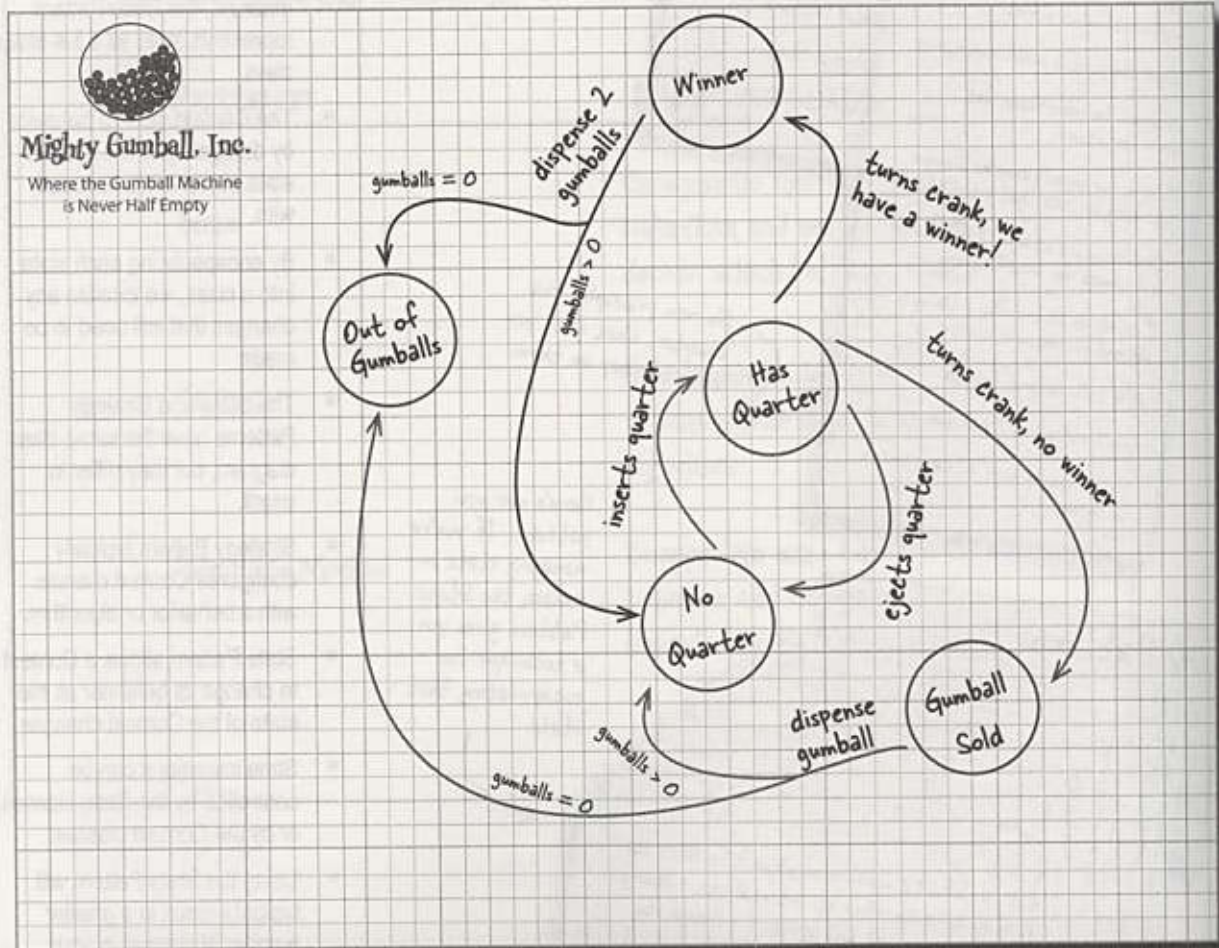 Mighty Gumball, Inc.
Where the Gumball Machine
is Never Half Empty
Winner
dispense 2
gumballs
gumballs = 0
turns crank, we
have a winner!
gumballs > 0
Out of
Gumballs
Has
Quarter
turns crank, no winner
inserts quarter
ejects quarter
No
Quarter
Gumball
Sold
dispense
gumball
gumballs > 0
gumballs = 0